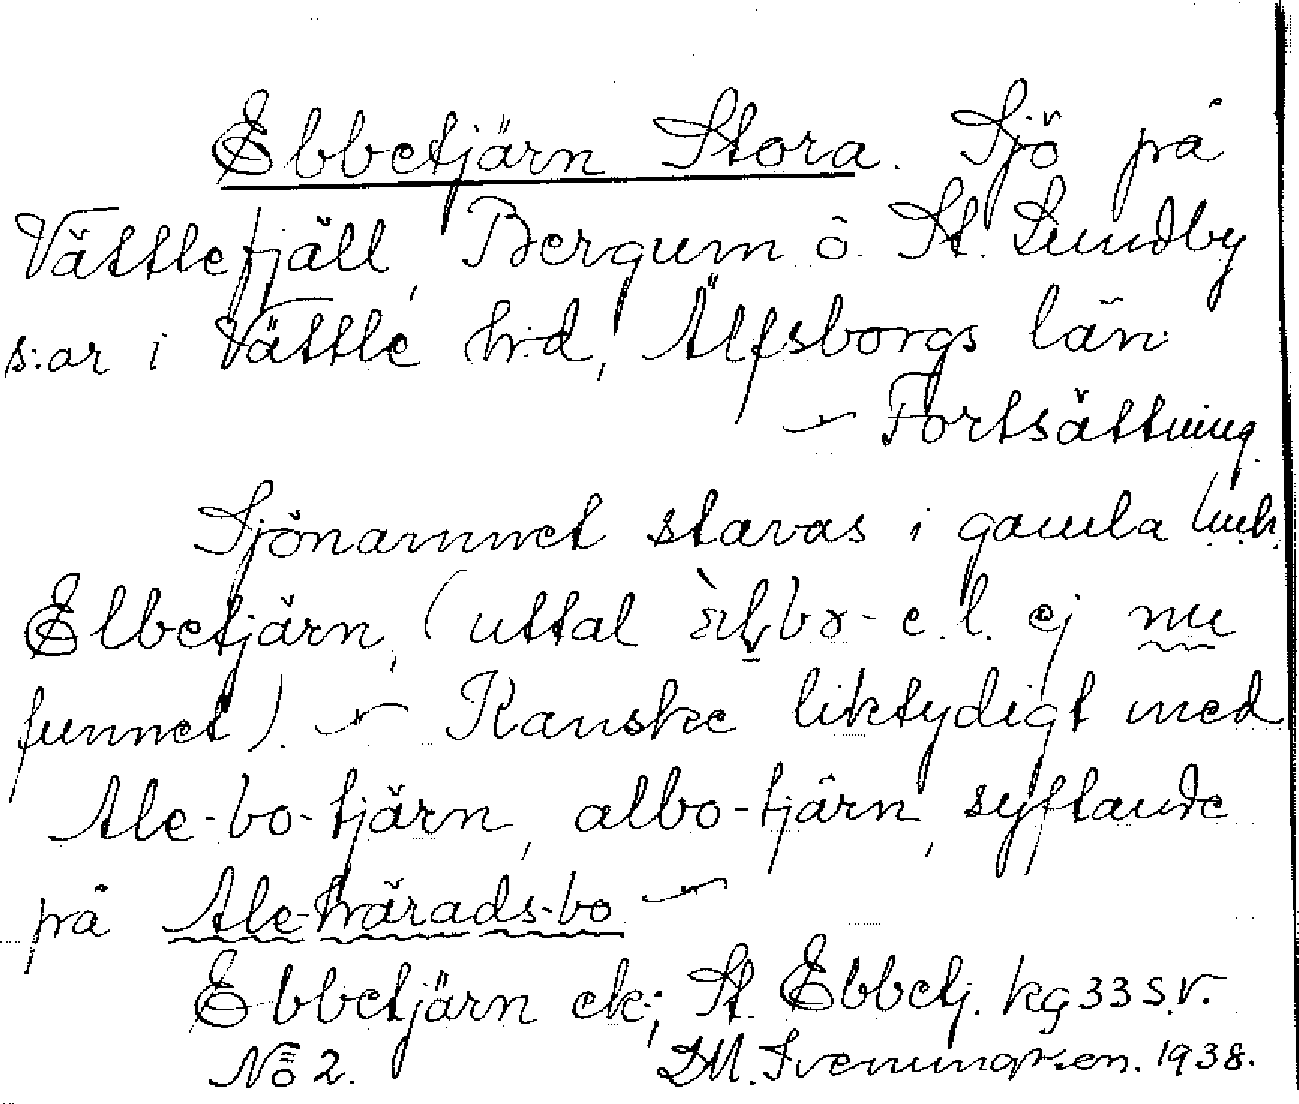 Ebbetjärn Stora. Sjö på
Vättlefjäll, Bergum o. St. Lundby
s:ar i Vättle h:d, Älfsborgs län.
— Fortsättning.
Sjönamnet stavas i gamla
Elbetjärn, (uttal e.l. ej nu
funnet). — Kanske liktydigt med
Ale-bo-tjärn, albo-tjärn, syftande
på Ale-härads-bo —
Ebbetjärn ek; St. Ebbetj. kg 33 s.v.
No 2. DM. Sveningsson. 1938.